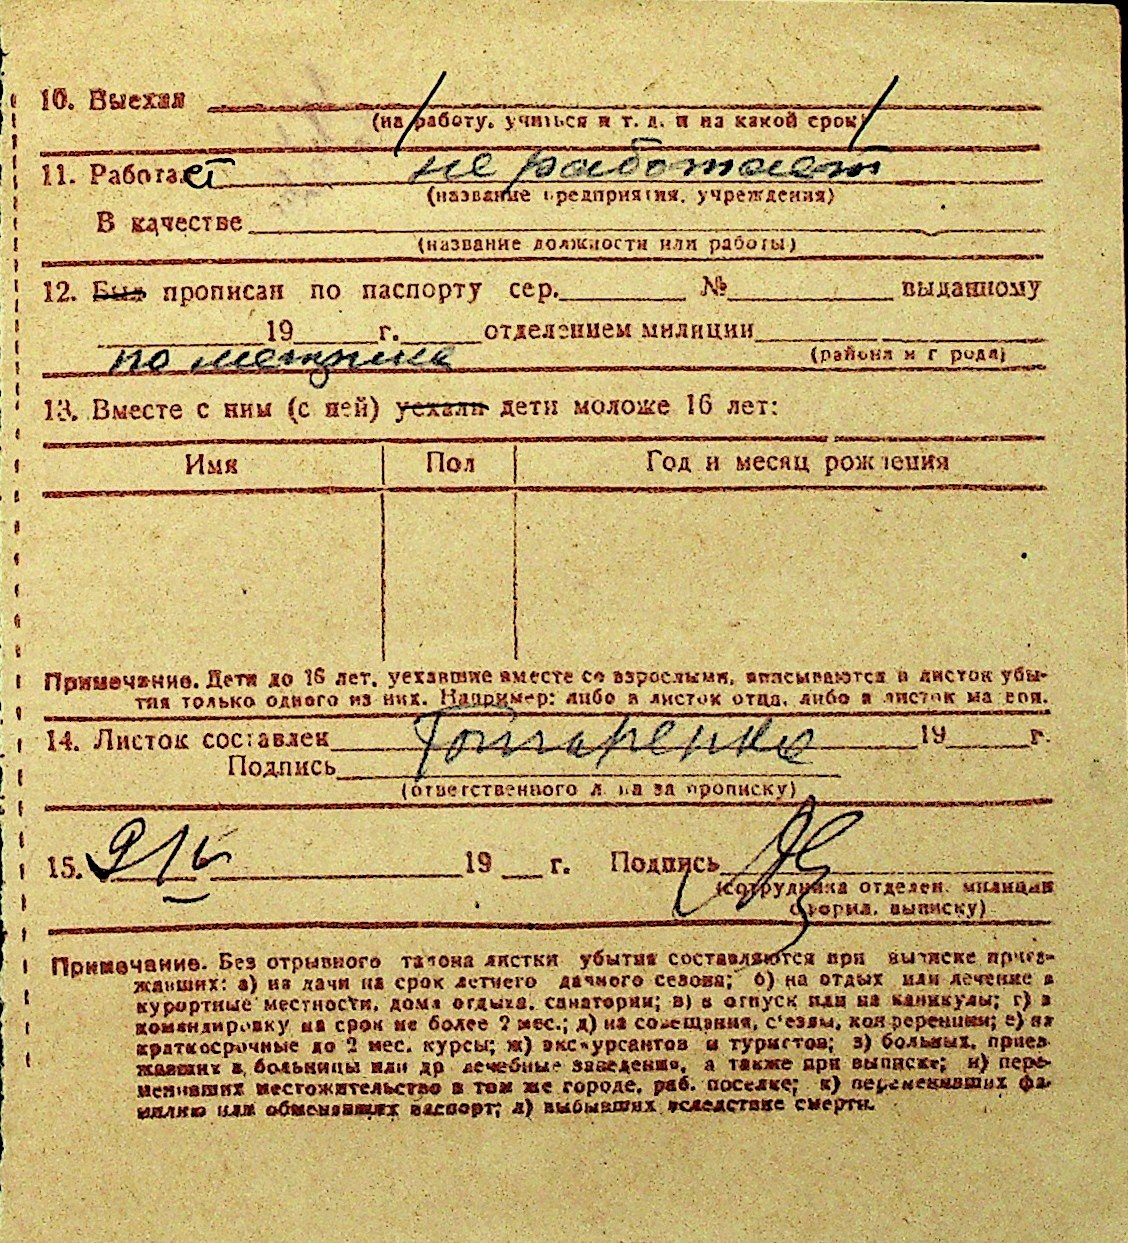 10. Выехал
(на работу, учиться и т. д. и на какой срок)
11. Работает не работает
(название предприятия, учреждения)
В качестве
(название должности или работы)
12. Был прописан по паспорту сер. № выданному
19 г. отделением милиции
по метрике (района и города)
13. Вместе с ним (с ней) уехали дети моложе 16 лет:
Имя Пол Год и месяц рождения
Примечание. Дети до 16 лет, уехавшие вместе со взрослыми, вписываются в листок убы-
тия только одного из них. Например: либо в листок отца, либо в листок матери.
14. Листок составлен 19 г.
Подпись Гончаренко
(ответственного лица за прописку)
15. 9/IV 19 г. Подпись
(сотрудника отделен. милиции
оформил. выписку)
Примечание. Без отрывного талона листки убытия составляются при выписке приез-
жавших: а) на дачи на срок летнего дачного сезона; б) на отдых или лечение в
курортные местности, дома отдыха, санатории; в) в отпуск или на каникулы; г) в
командировку на срок не более 2 мес.; д) на совещания, с'езды, конференции; е) на
краткосрочные до 2 мес. курсы; ж) экскурсантов и туристов; з) больных, приез-
жавших в больницы или др лечебные заведения, а также при выписке; и) пере-
менивших местожительство в том же городе, раб. поселке; к) переменивших фа-
милию или обменявших паспорт; л) выбывших вследствие смерти.